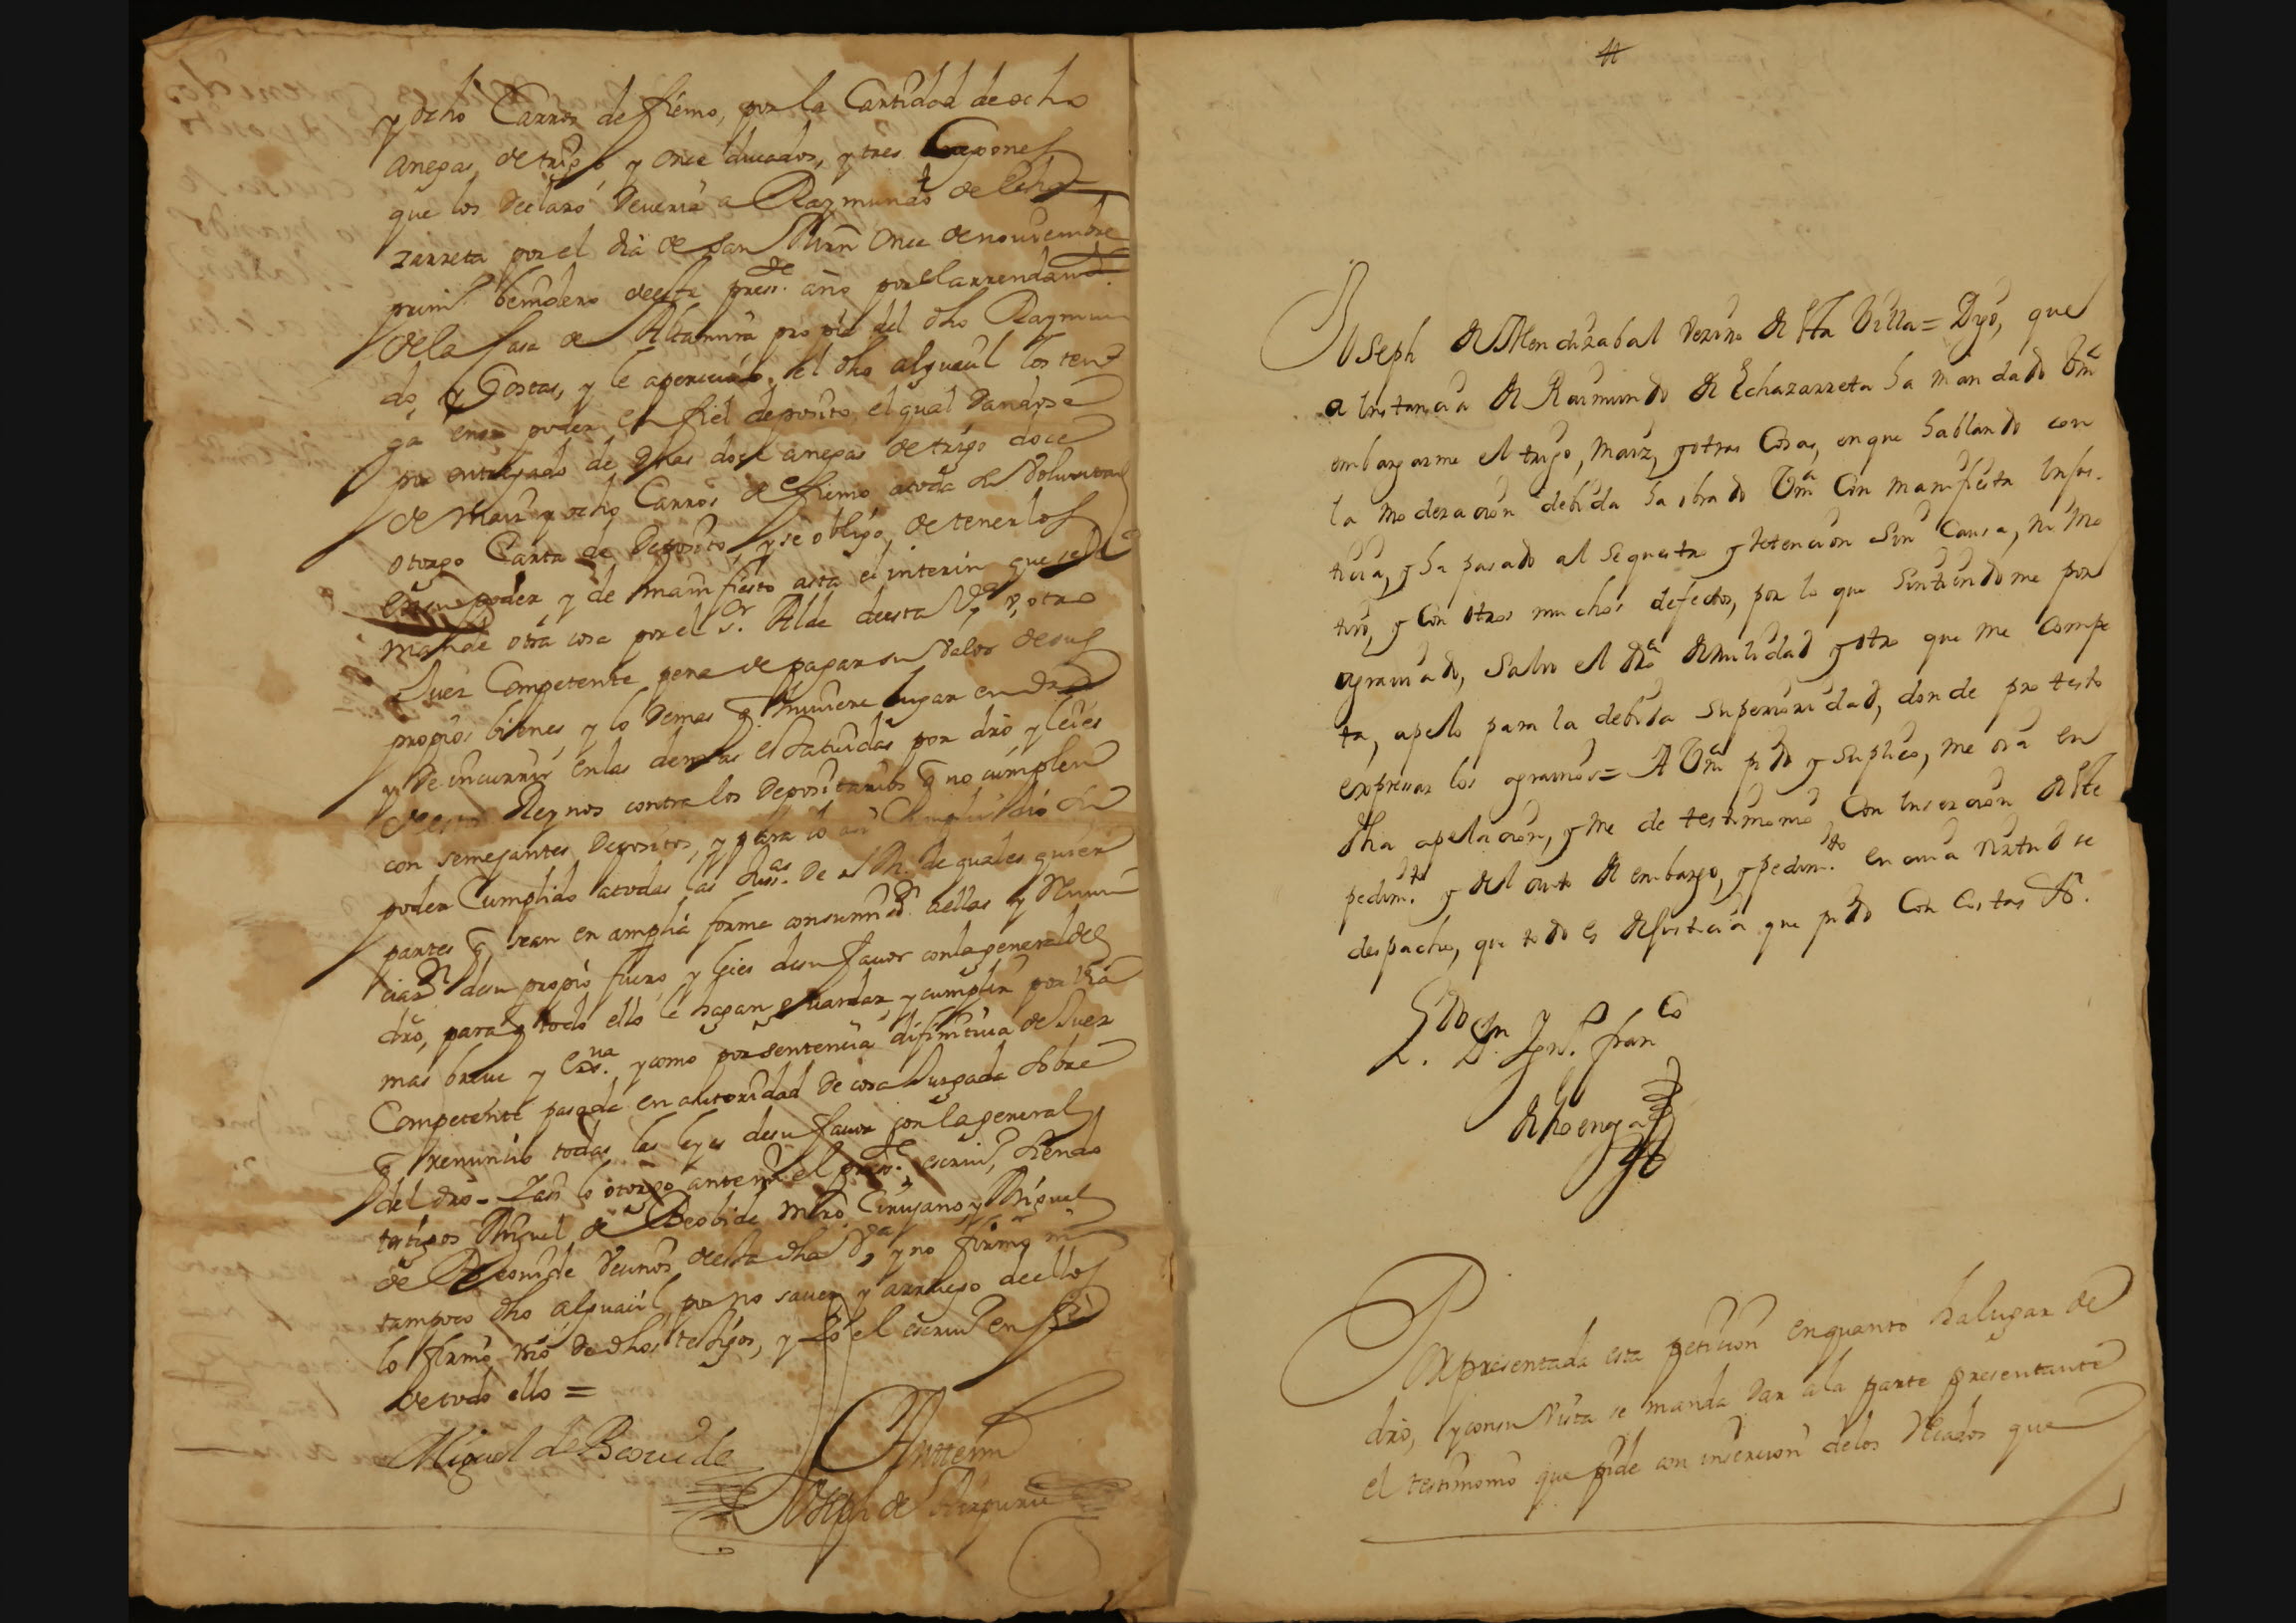 y ocho Carros de fiemo, por la Cantidad de ocho
anegas de trigo, y once ducados, y tres Capones
que los declaró deveria a Raymundo de Echa=
zarreta por el dia de san Mrñ Once de noviembre
prim.º benidero deeste press.te año por el arrendam.to
dela Casa de Altamira propia del dho Raymun
do, y Costas, y le apercivió el dho alguacil los ten
ga en su poder en fiel deposito, el qual dandose
por entregado de dhas doce anegas de trigo doce
de maiz y ocho Carros de fiemo atoda su Voluntad
otorgo Carta de Deposito, y se obligó, de tenerlos
en su poder y de manifiesto asta el interin que se le
mande otra cosa por el s.r Alde deesta V.a, y otro
Juez Competente pena de pagar su Valor de sus
propios bienes, y lo demas q̃ huviere lugar en dro
y de incurrir enlas demas estatuidas por dro y leies
destos Reynos contra los Depositarios q̃ no cumplen
con semejantes Depositos, y para lo asi Cumplir dió su
poder Cumplido atodas las Juss.as de s M. de quales quier
partes q̃ sean en amplia forma consumis.on aellas y Renun
ciaz.on desu propio fuero, y leies desu favor conla general del
dro, para q̃ todo ello le hagan guardar, y cumplir por via
mas breve y Exs.va y como por sentencia difinitiva de Juez
Competente pasada en autoridad de cosa Juzgada sobre
q̃ renunció todas las leyes desu favor con la general
del dro = Y asi lo otorgo antemi el press.te escriv.o, siendo
testigos Miguel de Beobide mro Cirujano y Miguel
de Beovide Vecinos deesta dha V.a, y no firmo ni
tampoco dho alguacil por no saver y arruego deellos
lo firmó vno de dhos testigos, y Yo el escriv.o en fee
de todo ello =
Miguel de Beovide
Antemi
Joseph de Aizpuru
4
Joseph de Mendizabal vezino de esta Villa = Digo, que
a instancia de Raimundo de Echazarreta ha mandado Vm
embargarme el trigo, maiz, y otras Cosas, en que hablando con
la moderacion debida ha obrado Vm Con manifiesta injus-
ticia, y ha pasado al sequestro y retencion sin Causa, ni mo
tivo, y Con otros muchos defectos, por lo que sintiendome por
agraviado, salvo el dro de nulidad y otro que me Compe
ta, apelo para la debida superioridad, donde protesto
expresar los agravios = A Vm pido y suplico, me oia en
dha apelacion, y me de testimonio Con insercion de este
pedim.to y del auto de embargo, y pedim.to en cuia virtud se
despacho, que todo es de justicia que pido Con Costas &.
L.do D.n Ign.o Fran.co
de Loenga
Por presentada esta peticion en quanto ha lugar de
dro, y con su Vista se manda dar ala parte presentante
el testimonio que pide con insercion delos Recados que